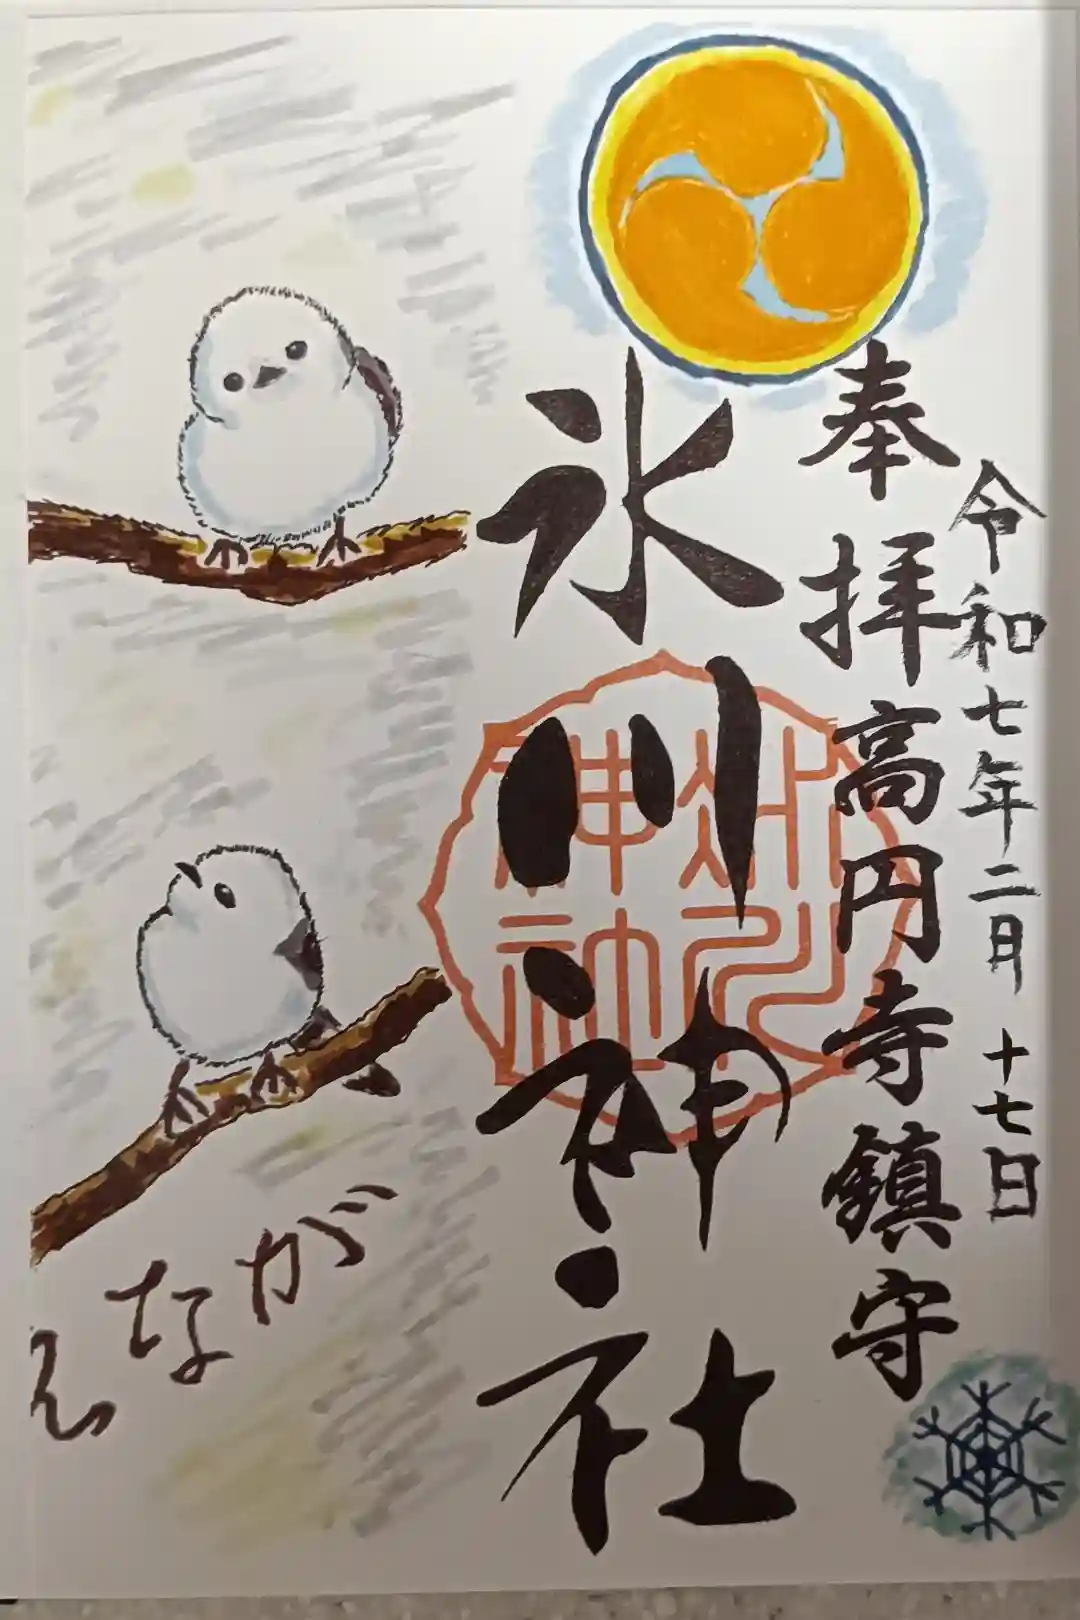 令和七年二月十七日
奉拝高円寺鎮守
氷川神社
えなが